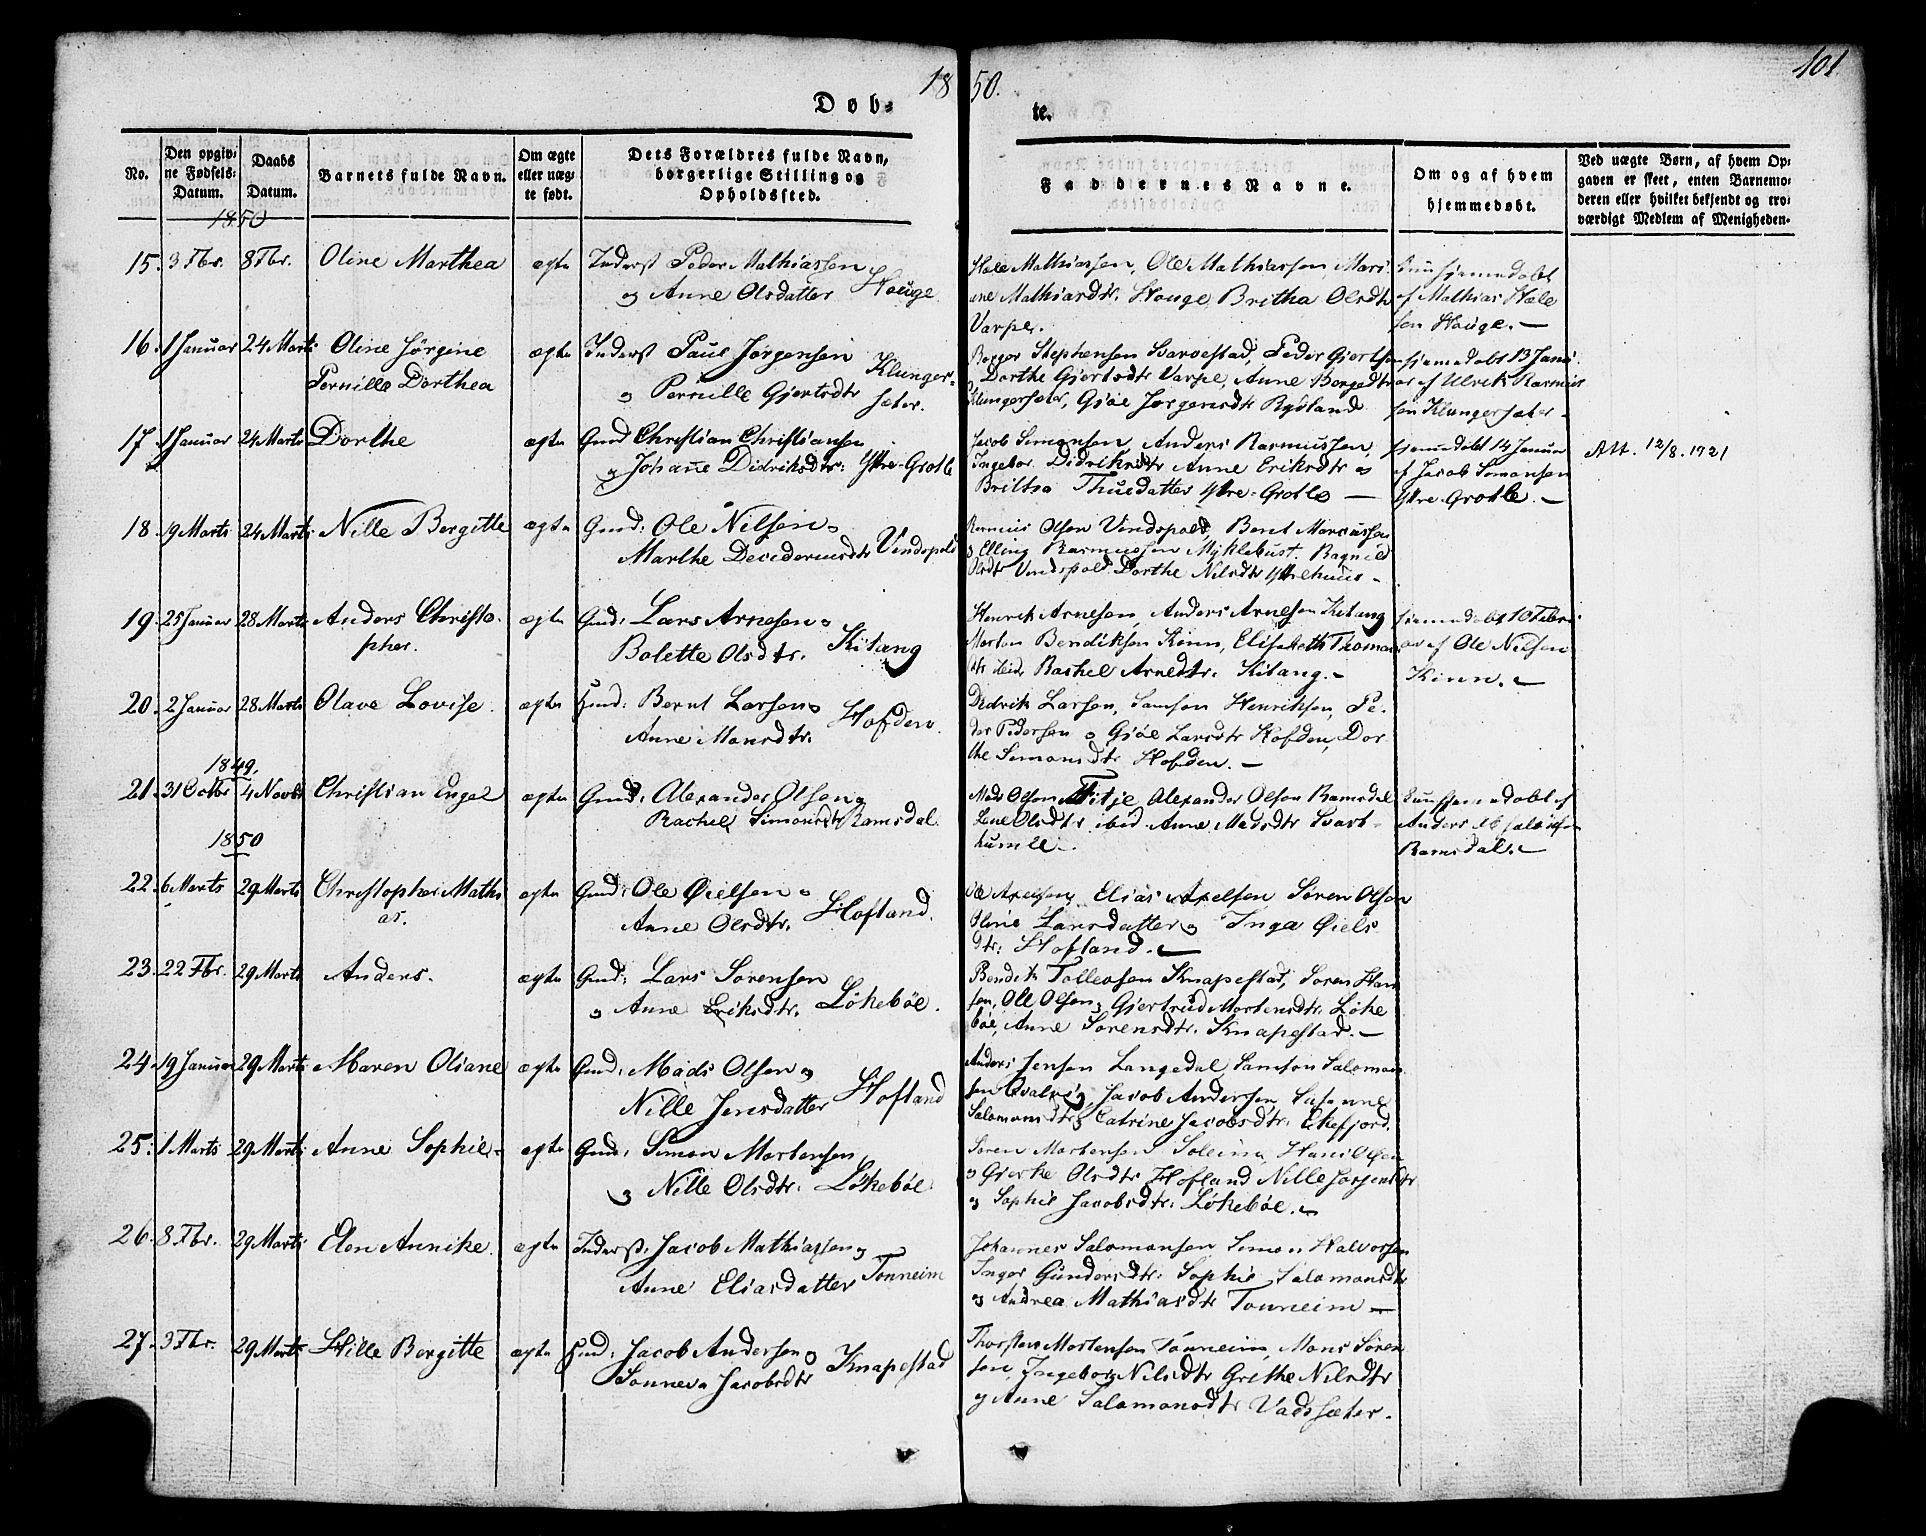 1850.
101
Døb-
te.
No.
Den opgiv-
ne Fødsels-
Datum.
Daabs
Datum.
Barnets fulde Navn.
Om ægte
eller uæg-
te født.
Dets Forældres fulde Navn,
borgerlige Stilling og
Opholdssted.
Faddernes Navne.
Om og af hvem
hjemmedøbt.
Ved uægte Børn, af hvem Op-
gaven er skeet, enten Barnemo-
deren eller hvilket bekjendt og tro-
værdigt Medlem af Menigheden.
1850
15. 3 Fbr. 8 Fbr. Oline Marthea ægte Inderst Peder Mathiassen
og Anne Olsdatter Houge.
Hole Mathiassen, Ole Mathiassen, Mari-
ane Mathiasdtr. Houge, Britha Olsdtr
Varpe.
hjemmedøbt
af Mathias Hole
sen Houge. —
16. 1 Januar 24 Marts Oline Jørgine
Pernille Dorthea
ægte Inderst Paul Jørgensen
og Pernille Gjertsdtr
Klunger-
sæter.
Borger Stephensen Barvestad, Peder Gjertsen
Dorthe Gjertsdtr Varpe, Anne Borgedtr
Klungersæter, Gjøe Jørgensdtr Rydland
hjemmedøbt 13 Janu-
ar af Ulrik Rasmus
sen Klungersæter
17. 1 Januar 24 Marts Dorthe ægte Gmd Christian Christiansen
og Johane Didriksdtr: Ytre-Grotle
Jacob Simonsen, Anders Rasmussen,
Ingebor Didriksdtr Anne Eriksdtr og
Britha Thuedatter Ytre-Grotle —
hjemmedøbt 14 Januar
af Jacob Simonsen
Ytre-Grotle. —
Att. 12/8. 1921
18. 19 Marts 24 Marts Nille Bergitte ægte Gmd: Ole Nilsen og
Marthe Decideriusdtr Vindspold
Rasmus Olsen Vindspold, Bent Marcussen
og Elling Rasmussen Myklebust. Ragnild
Olsdtr Vindspold. Dorthe Nilsdtr Ytrehuus -
19. 25 Januar 28 Marts Anders Christo-
pher.
ægte Gmd: Lars Arnesen og
Bolette Olsdtr. Kitang
Henrik Arnesen, Anders Arnesen Kitang
Morten Bendiksen Kinn, Elisabeth Thomas
dtr ibid. Rachel Arnedtr. Kitang. -
hjemmedøbt 10 Febru-
ar af Ole Nilsen
Kinn. —
20. 2 Januar 28 Marts Olave Lovise. ægte Gmd: Bernt Larsen og
Anne Monsdtr. Hofden.
Didrik Larsen, Samson Henriksen, Pe-
der Pedersen og Gjøe Larsdtr Hofden, Dor
the Simonsdtr Hofden. —
1849.
21. 31 Octbr 4 Novbr Christian Engel ægte Gmd: Alexander Olsen og
Rachel Simonsdtr Ramsdal.
Mads Olsen Fitje Alexander Olsen Ramsdal
Lene Olsdtr ibid Anne Madsdtr Svart-
humle.
hjemmedøbt af
Anders
Ramsdal. —
1850
22. 6 Marts 29 Marts Christopher Mathi
as.
ægte Gmd: Ole Øielsen og
Anne Olsdtr. Hofland.
Elias Axelsen, Søren Olsen
Larsdatter og Inga Øiels
dtr: Hofland. —
23. 22 Fbr. 29 Marts Anders. ægte Gmd: Lars Sørensen
og Anne Eriksdtr. Løkebøe.
Bendik Tollevsen Knapestad, Søren Han
sen, Ole Olsen, Gjertrud Mortensdtr. Løke
bøe, Anne Sørensdtr. Knapestad. —
24. 19 Januar 29 Marts Maren Oliane ægte Gmd: Mads Olsen og
Nille Jensdatter Hofland
Anders Jensen Langedal, Samson Salomon
sen Qvalvig, Jacob Andersen Susanne
Salomonsdtr og Catrine Jacobsdtr. Ekefjord.
25. 1 Marts 29 Marts Anne Sophie ægte Gmd: Simon Mortensen
og Nille Olsdtr. Løkebøe
Søren Mortensen Soleim, Hans Olsen
og Gjerke Olsdtr Hofland Nille Jørgensdtr
og Sophie Jacobsdtr. Løkebøe. —
26. 8 Fbr. 29 Marts Elen Annike. ægte Inderst: Jacob Mathiassen og
Anne Eliasdatter Tonneim
Johannes Salomonsen Simon Halvorsen
Inger Gundersdtr: Sophie Salomonsdtr
og Andrea Mathiasdtr Tonneim —
27. 3 Fbr. 29 Marts Hille Bergitte ægte Gmd: Jacob Andersen og
Sonneva Jacobsdtr Knapestad
Thorsten Mortensen Tonneim, Mons Sören
sen, Ingebor Nilsdtr Grethe Nilsdtr
og Anne Salomonsdtr Vadsæter.